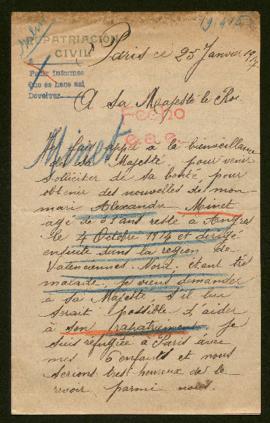 REPATRIACIÓN
CIVIL
Paris ce 25 Janvier 1917
Pedir informes
Que se hace así
Devolver
A Sa Majesté le Roi
Hecho
Minet
Je fais appel à la bienveillance
de Sa Majesté pour venir
solliciter de sa bonté pour
obtenir des nouvelles de mon
mari Alexandre Minet
âgé de ans resté à
le 4 Octobre 1914 et dirigé
ensuite dans la région de
Valenciennes Nord. étant très
malade, je viens demander
à Sa Majesté s'il lui
serait possible d'aider
à son rapatriement, je
suis réfugiée à Paris avec
mes enfants et nous
serions bien heureux de le
revoir parmi nous.